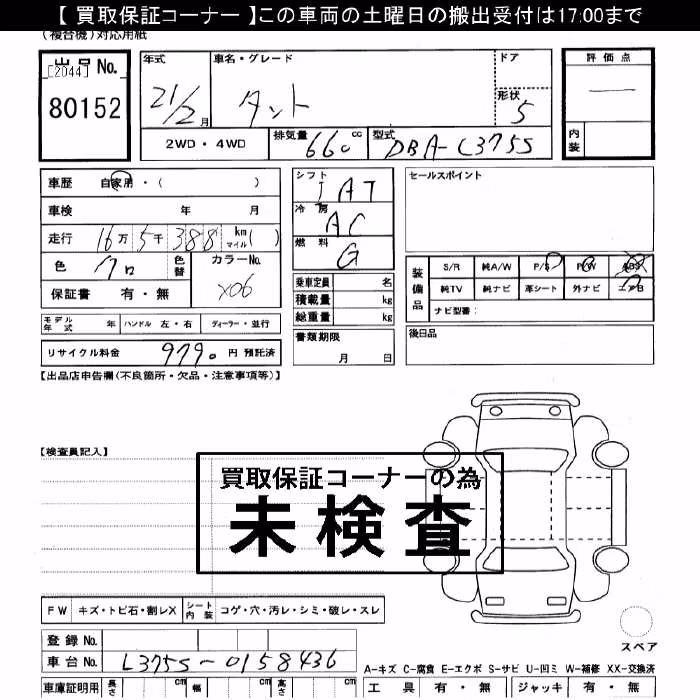 【 買取保証コーナー 】この車両の土曜日の搬出受付は17:00まで
(複合機)対応用紙
出品 No.
[2044]
80152
年式 車名・グレード ドア 評価点
21/2月 タント 形状 5 —
2WD・4WD 排気量 660cc 型式 DBA-L375S 内装
車歴 自家用・( )
車検 年 月
走行 16万5千388km マイル( )
色 クロ 色替 カラーNo. X06
保証書 有・無
シフト IAT
冷房 AC
燃料 G
乗車定員 名
積載量 kg
総重量 kg
セールスポイント
装備品 S/R 純A/W P/S P/W ABS
純TV 純ナビ 革シート 外ナビ エアB
ナビ型番:
モデル年式 年 ハンドル 左・右 ディーラー・並行
書類期限 月 日
後日品
リサイクル料金 9790 円 預託済
【出品店申告欄(不良箇所・欠品・注意事項等)】
【検査員記入】
買取保証コーナーの為
未検査
FW キズ・トビ石・割レX シート内装 コゲ・穴・汚レ・シミ・破レ・スレ
スペア
登録 No.
車台 No. L375S-0158436
A-キズ C-腐食 E-エクボ S-サビ U-凹ミ W-補修 XX-交換済
車庫証明用 長さ cm 幅 cm 高さ cm 工具 有・無 ジャッキ 有・無